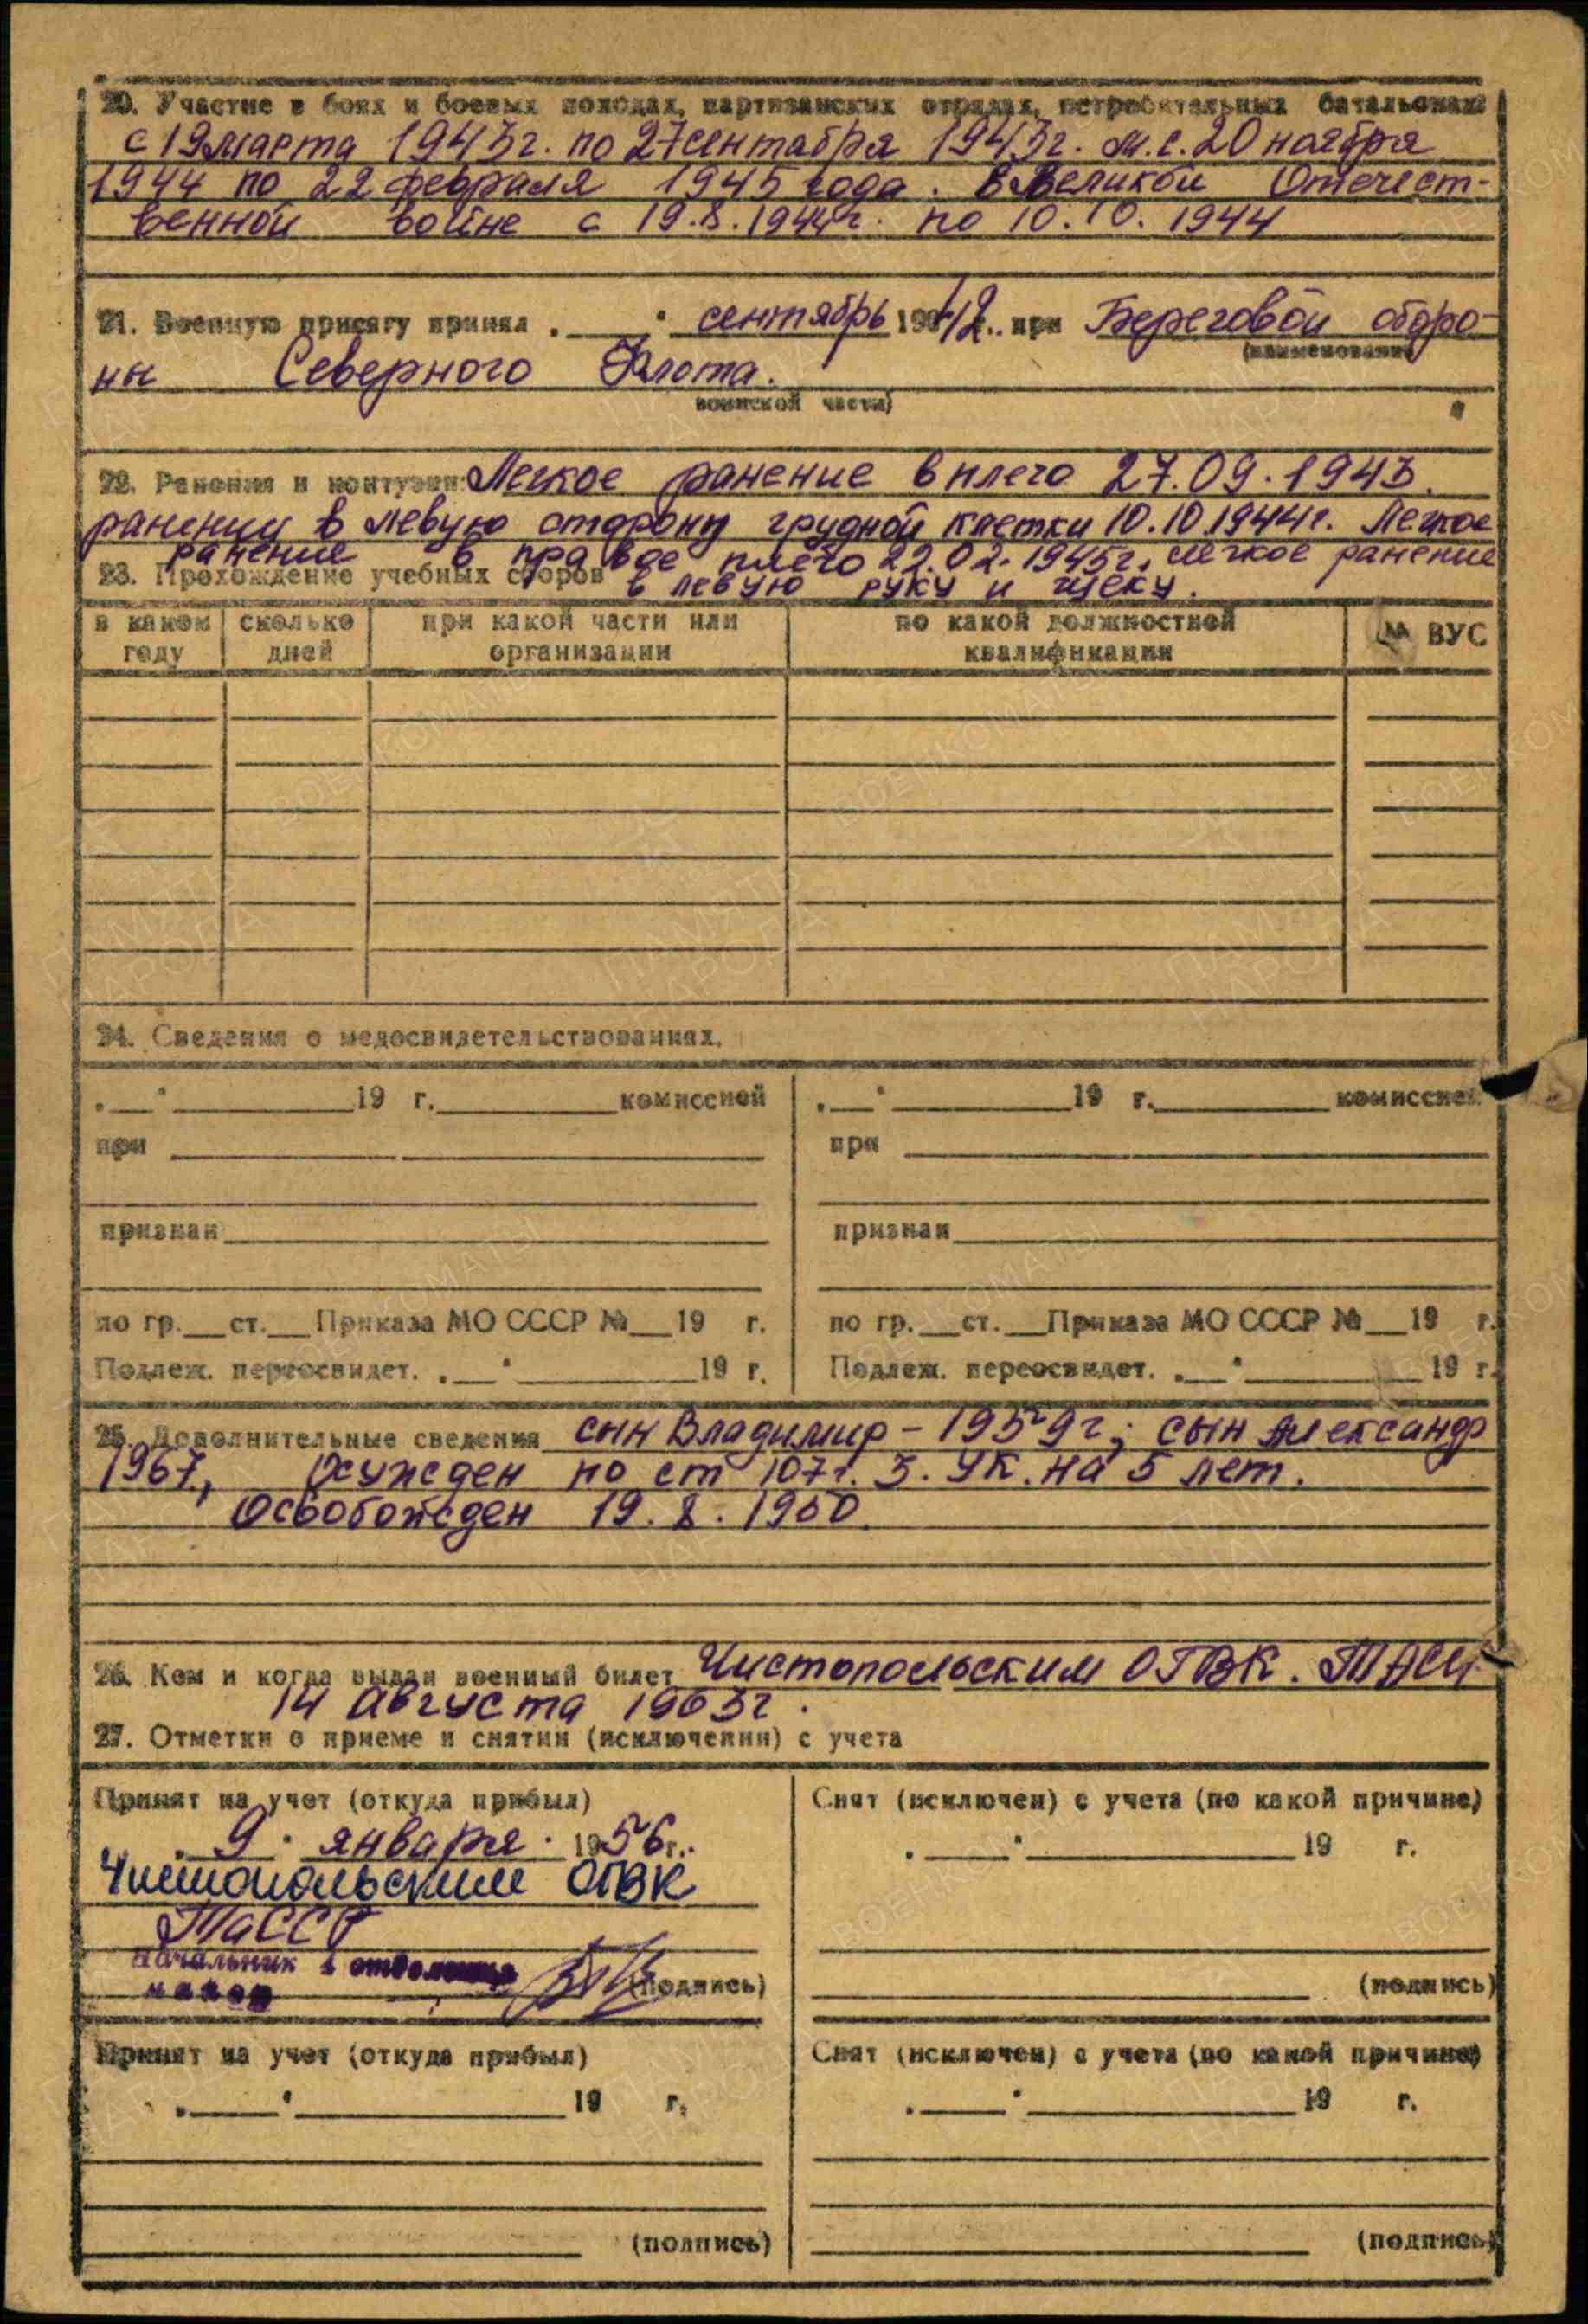 20. Участие в боях и боевых походах, партизанских отрядах, истребительных батальонах
с 19 марта 1943г. по 27 сентября 1943г. м.с. 20 ноября
1944 по 22 февраля 1945 года. В Великой Отечест-
венной войне с 19.8.1944г. по 10.10.1944
21. Военную присягу принял сентябрь 1942г. при Береговой оборо-
(наименование
ны Северного Флота.
воинской части)
22. Ранения и контузии: Легкое ранение в плечо 27.09.1943.
ранении в левую сторону грудной клетки 10.10.1944г. Легкое
ранение в правое плечо 22.02.1945г., легкое ранение
23. Прохождение учебных сборов в левую руку и щеку.
в каком году | сколько дней | при какой части или организации | по какой должностной квалификации | № ВУС
24. Сведения о медосвидетельствованиях.
. " 19 г. комиссией . " 19 г. комиссией
при при
признан признан
по гр. ст. Приказа МО СССР № 19 г. по гр. ст. Приказа МО СССР № 19 г.
Подлеж. переосвидет. . " 19 г. Подлеж. переосвидет. . " 19 г.
25. Дополнительные сведения сын Владимир - 1959г; сын Александр
1967, Осужден по ст 107 г. 3. УК. на 5 лет.
Освобожден 19.8.1950.
26. Кем и когда выдан военный билет Чистопольским ОГВК. ТАСС
14 августа 1963г.
27. Отметки о приеме и снятии (исключении) с учета
Принят на учет (откуда прибыл) Снят (исключен) с учета (по какой причине)
9 января 1956г. . " 19 г.
Чистопольским ОГВК
ТаССР
Начальник 1 отделения
(подпись) (подпись)
Принят на учет (откуда прибыл) Снят (исключен) с учета (по какой причине)
. " 19 г. . " 19 г.
(подпись) (подпись)